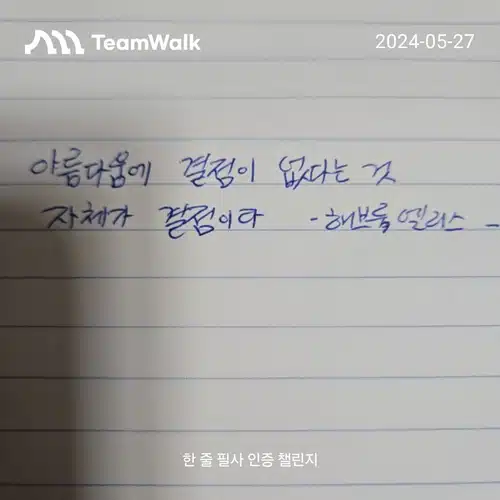 TeamWalk
2024-05-27
아름다움에 결점이 없다는 것
자체가 결점이다 - 해브록 엘리스 -
한 줄 필사 인증 챌린지